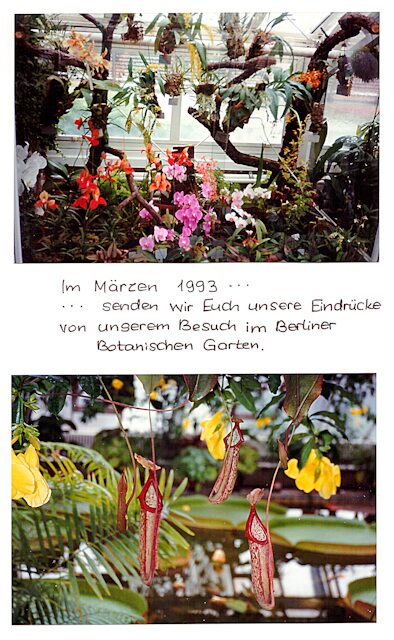 Im Märzen 1993 ...
... senden wir Euch unsere Eindrücke
von unserem Besuch im Berliner
Botanischen Garten.